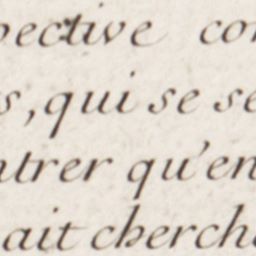 pective con
s, qui se se
ntrer qu'en
ait cherch